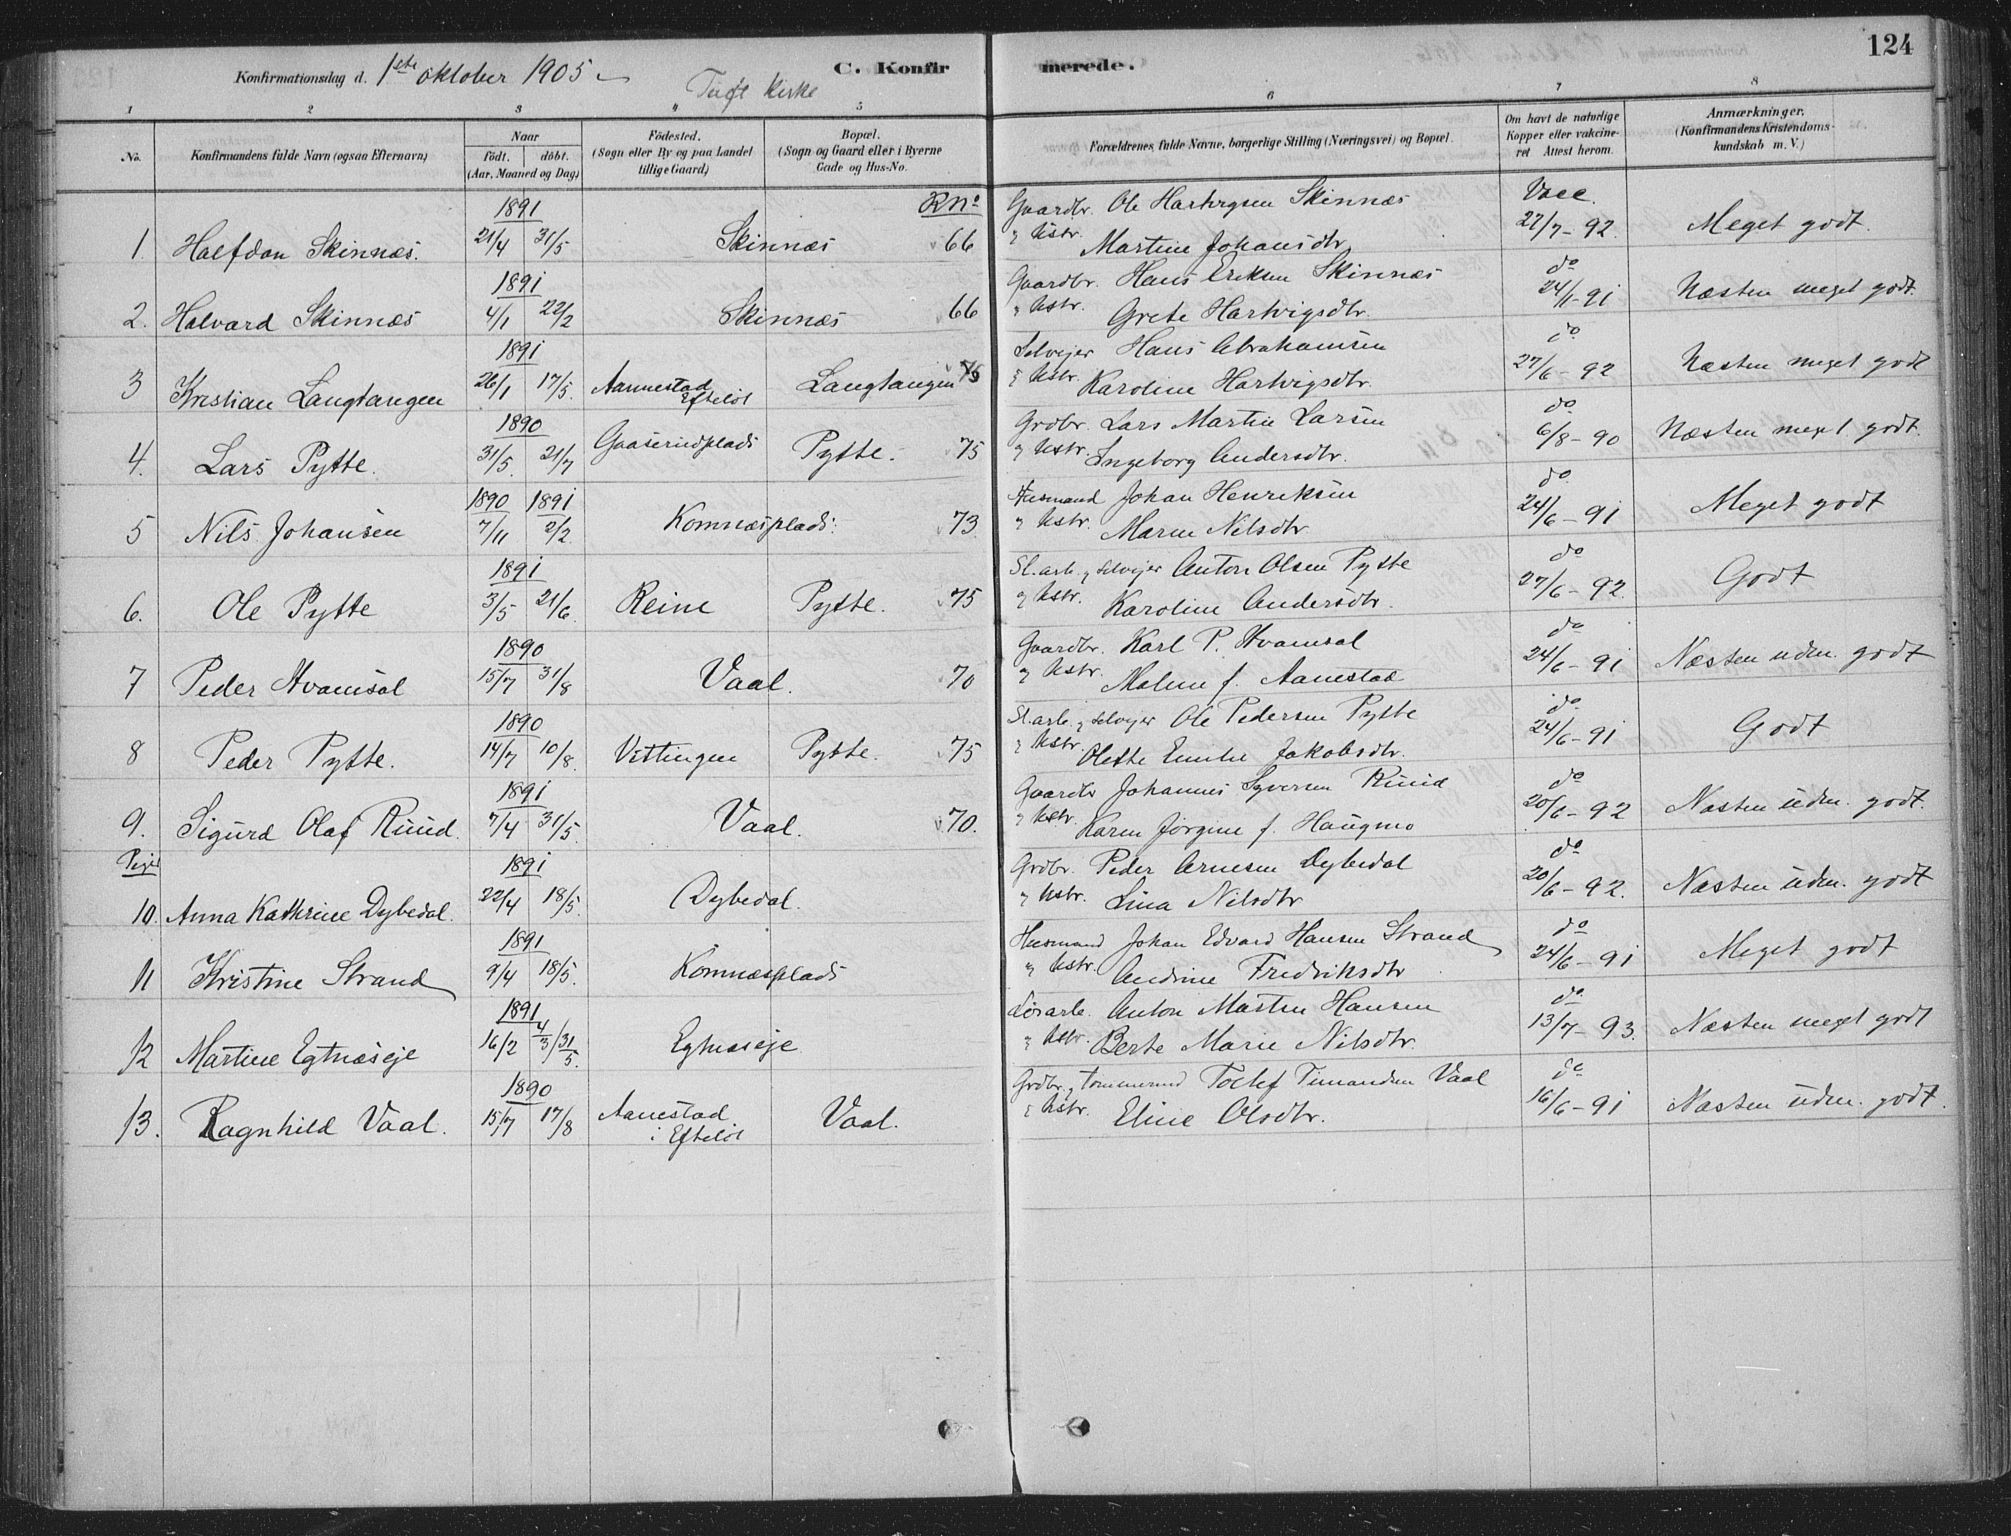 124
Konfirmationsdag d. 1ste oktober 1905 C. Konfirmerede.
Tuft Kirke
1 2 3 " 5 6 7 8
No. Konfirmandens fulde Navn (ogsaa Efternavn) Naar født. døbt. (Aar, Maaned og Dag) Fødested. (Sogn eller By og paa Landet tillige Gaard) Bopæl. (Sogn og Gaard eller i Byerne Gade og Hus-No. Forældrenes fulde Navne, borgerlige Stilling (Næringsvei) og Bopæl. Om havt de naturlige Kopper eller vakcineret Attest herom. Anmærkninger. (Konfirmandens Kristendomskundskab m. V.)
RNo
1891 Gaardbr. Ole Hartvigsen Skinnæs Vacc.
1. Halfdan Skinnæs. 21/4 31/5 Skinnæs 66 og Hstr. Martine Johansdtr. 27/7-92. Meget godt.
1891 Gaardbr. Hans Eriksen Skinnæs do
2. Halvard Skinnæs 4/1 22/2 Skinnæs 66 og Hstr. Grete Hartvigsdtr. 24/1-91 Næsten meget godt.
1891 Selvejer Hans Abrahamsen do
3 Kristian Langtangen 26/1 17/5. Aannestad Efteløt Langtangen og Hstr. Karoline Hartvigsdtr. 27/6-92 Næsten meget godt
1890 Grdbr. Lars Martin Larsen do
4. Lars Pytte. 31/5. 21/7 Gaaserudplads Pytte. 75 og Hstr. Ingeborg Andersdtr. 6/8-90 Næsten meget godt.
1890 1891 Husmand Johan Henriksen do
5 Nils Johansen 7/11 2/2 Komnæsplads. 73. og Hstr. Maren Nilsdtr. 24/6-91 Meget godt
1891 Sl.arb. og selvejer Anton Olsen Pytte do
6. Ole Pytte 3/5 21/6 Reine Pytte. 75 og Hstr. Karoline Andersdtr. 27/6-92. Godt
1890 Gaardbr. Karl P. Hvamsal do
7 Peder Hvamsal 15/7 31/8 Vaal. 70 og Hstr. Malene f. Aanestad 24/6-91 Næsten udm. godt
1890 Sl.arb. og selvejer Ole Pedersen Pytte do
8 Peder Pytte. 14/7 10/8. Vittingen Pytte. 75 og Hstr. Olette Emilie Jakobsdtr. 24/6-91 Godt
1891 Gaardbr Johannes Syversen Ruud do
9. Sigurd Olaf Ruud. 7/4 31/5 Vaal. 70. og Hstr. Karen Jørgine f. Haugmo 20/6-92 Næsten udm. godt.
Piger 1891 Grdbr. Peder Arnesen Dybedal do
10. Anna Kathrine Dybedal. 22/4 18/5. Dybedal. og Hstr. Lina Nilsdtr 20/6-92. Næsten udm. godt
1891 Husmand Johan Edvard Hansen Strand do
11 Kristine Strand 9/4 18/5. Komnæsplads og Hstr. Andrine Fredriksdtr 24/6-91 Meget godt
1891 Løsarb. Anton Martin Hansen do
12 Martine Egtnæseje 16/2 4/3 / 31/5. Egtnæseje og Hstr. Berte Marie Nilsdtr. 13/7-93. Næsten meget godt
1890 Grdbr. og tømmermd Tollef Timandsen Vaal do
13. Ragnhild Vaal. 15/7 17/8 Aanestad i Efteløt Vaal. og Hstr. Eline Olsdtr. 16/6-91 Næsten udm. godt.